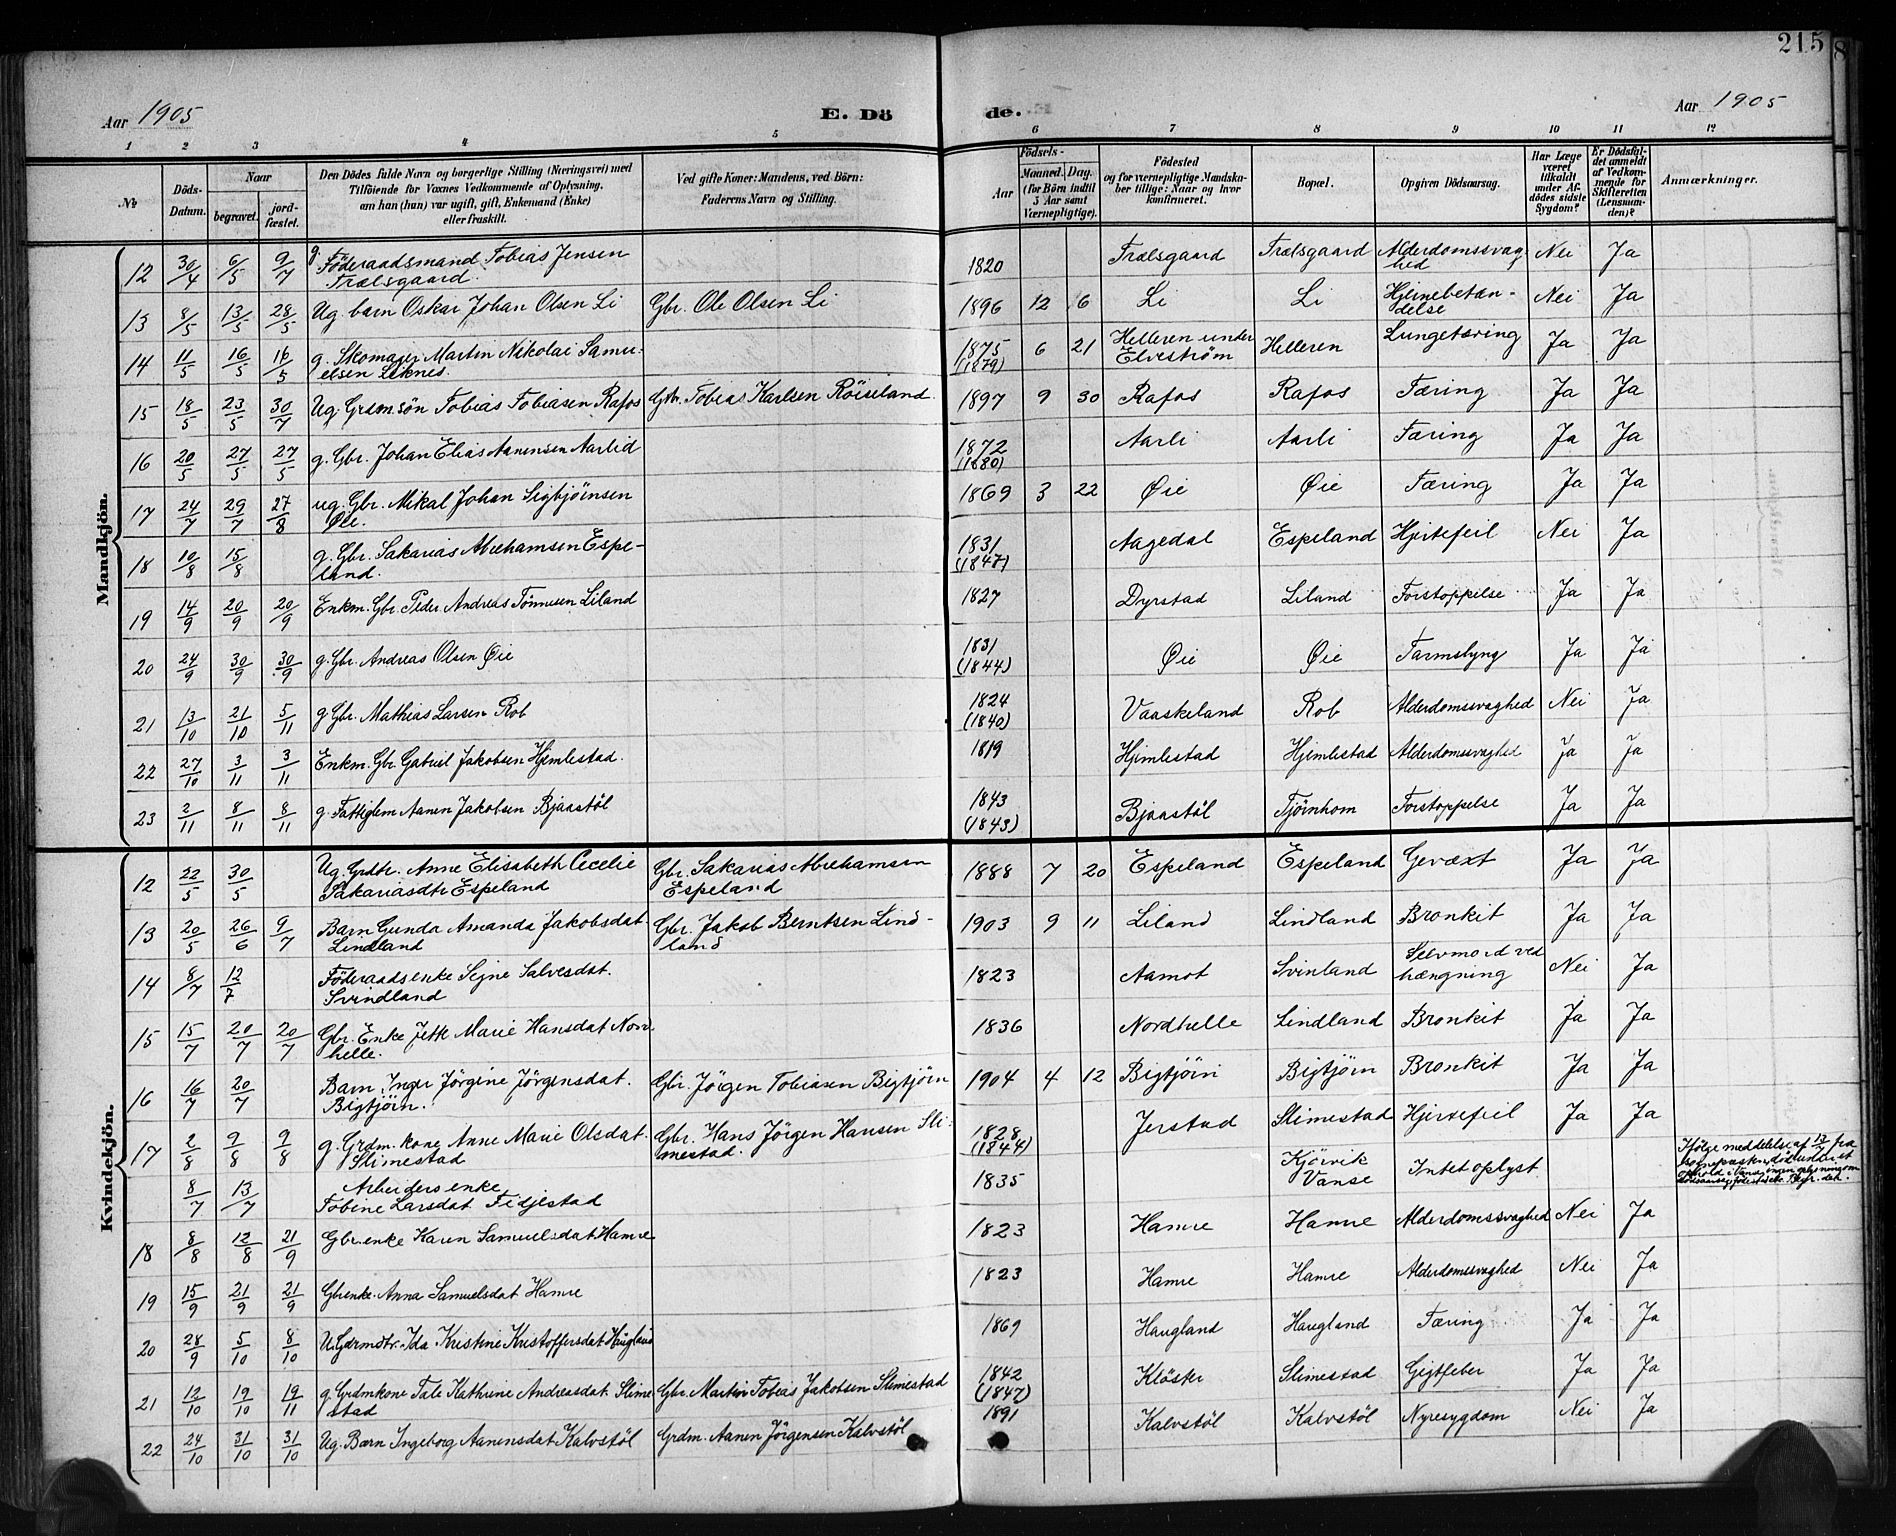 215
Aar 1905 E. Dö de. Aar 1905
1 2 3 4 5 6 7 8 9 10 11 12
№ Döds-Datum. Naar begravet. jord-fæstet. Den Dödes fulde Navn og borgerlige Stilling (Næringsvei) med Tilföiende for Voxnes Vedkommende af Oplysning, om han (hun) var ugift, gift, Enkemand (Enke) eller fraskilt. Ved gifte Koner: Mandens, ved Börn: Faderens Navn og Stilling. Födsels- Aar Maaned. Dag. (for Börn indtil 5 Aar samt Værnepligtige). Födested og for værnepligtige Mandskaber tillige: Naar og hvor konfirmeret. Bopæl. Opgiven Dödsaarsag. Har Læge været tilkaldt under Afdödes sidste Sygdom? Er Dödsfaldet anmeldt af Vedkommende for Skifteretten (Lensmanden)? Anmærkninger.
Mandkjön.
12 30/4 6/5 9/7 g. Föderaadsmand Tobias Jensen Trælsgaard. 1820 Trælsgaard Trælsgaard Alderdomssvaghed Nei Ja
13 8/5 13/5 28/5 Ug. barn Oskar Johan Olsen Li Gbr. Ole Olsen Li 1896 12 6 Li Li Hjernebetændelse Nei Ja
14 11/5 16/5 16/5 g. Skomager Martin Nikolai Samuelsen Liknes. 1875 (1879) 6 21 Helleren under Elveström Helleren Lungetæring Ja Ja
15 18/5 23/5 30/7 Ug. Grdmsön Tobias Tobiasen Rafos Gbr. Tobias Karlsen Röiseland. 1897 9 30 Rafos Rafos Tæring Ja Ja
16 20/5 27/5 27/5 g. Gbr. Johan Elias Aanensen Aarlid 1872 (1880) Aarli Aarli Tæring Ja Ja
17 24/7 29/7 27/8 ug. Gbr. Mikal Johan Sigbjörnsen Øie. 1869 3 22 Øie Øie Tæring Ja Ja
18 10/8 15/8 g. Gbr. Sakarias Abrehamsen Espeland. 1831 (1847) Aagedal Espeland Hjertefeil Nei Ja
19 14/9 20/9 20/9 Enkm. Gbr. Peder Andreas Tönnesen Liland 1827 Dyrstad Liland Forstoppelse Ja Ja
20 24/9 30/9 30/9 g. Gbr. Andreas Olsen Øie 1831 (1844) Øie Øie Tarmslyng Ja Ja
21 13/10 21/10 5/11 g Gbr. Mathias Larsen Rob 1824 (1840) Vaaskeland Rob Alderdomssvaghed Nei Ja
22 27/10 3/11 3/11 Enkm. Gbr. Gabriel Jakobsen Hjemlestad. 1819 Hjemlestad Hjemlestad Alderdomssvaghed Ja Ja
23 2/11 8/11 8/11 g. Fattiglem Aanen Jakobsen Bjaastöl 1843 (1843) Bjaastöl Tjörnhom Forstoppelse Ja Ja
Kvindekjön.
12 22/5 30/5 Ug. Grdtr. Anne Elisabeth Cecelie Sakariasdtr Espeland Gbr. Sakarias Abrehamsen Espeland 1888 7 20 Espeland Espeland Gevæxt Ja Ja
13 20/5 26/6 9/7 Barn Gunda Amanda Jakobsdat. Lindland Gbr. Jakob Berntsen Lindland 1903 9 11 Liland Lindland Bronkit Ja Ja
14 8/7 12/7 Föderaadsenke Sejne Salvesdat. Svindland 1823 Aamot Svinland Selvmord ved hængning Nei Ja
15 15/7 20/7 20/7 Gbr. Enke Jette Marie Hansdat Nordhelle. 1836 Nordhelle Lindland Bronkit Ja Ja
16 16/7 20/7 Barn Inger Jörgine Jörgensdat. Bigtjörn. Gbr. Jörgen Tobiasen Bigtjörn 1904 4 12 Bigtjörn Bigtjörn Bronkit Ja Ja
17 2/8 9/8 9/8 g. Grdm. kone Anne Marie Olsdat. Slimestad Gbr. Hans Jörgen Hansen Slimestad. 1828 (1844) Jerstad Slimestad Hjertefeil Ja Ja
8/7 13/7 Arbeidersenke Tobine Larsdat Fidjestad 1835 Kjörvik Vanse Intet oplyst Ifölge meddelelse af fra
18 8/8 12/8 21/9 Gbr. enke Karen Samuelsdat Hamre 1823 Hamre Hamre Alderdomssvaghed Nei Ja
19 15/9 21/9 21/9 Gbrenke. Anna Samuelsdat Hamre 1823 Hamre Hamre Alderdomssvaghed Nei Ja
20 28/9 5/10 8/10 U. Gdrmdtr. Ida Kristine Kristoffersdat Haugland 1869 Haugland Haugland Tæring Ja Ja
21 12/10 19/10 19/11 g. Grdmkone Tale Kathrine Andreasdat. Slimestad Gbr. Martin Tobias Jakobsen Slimestad 1842 (1847) Klöster Slimestad Gigtfeber Ja Ja
22 24/10 31/10 31/10 Ug. Barn Ingeborg Aanensdat Kalvstöl Grdm. Aanen Jörgensen Kalvstöl 1891 Kalvstöl Kalvstöl Nyresygdom Nei Ja